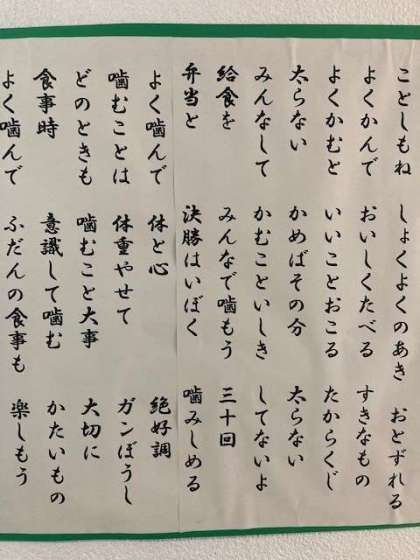 ことしもね しょくよくのあき おとずれる
よくかんで おいしくたべる すきなもの
よくかむと いいことおこる たからくじ
太らない かめばその分 太らない
みんなして かむこといしき してないよ
給食を みんなで噛もう 三十回
弁当と 決勝はいぼく 噛みしめる
よく噛んで 体と心 絶好調
噛むことは 体重やせて ガンぼうし
どのときも 噛むこと大事 大切に
食事時 意識して噛む かたいもの
よく噛んで ふだんの食事も 楽しもう